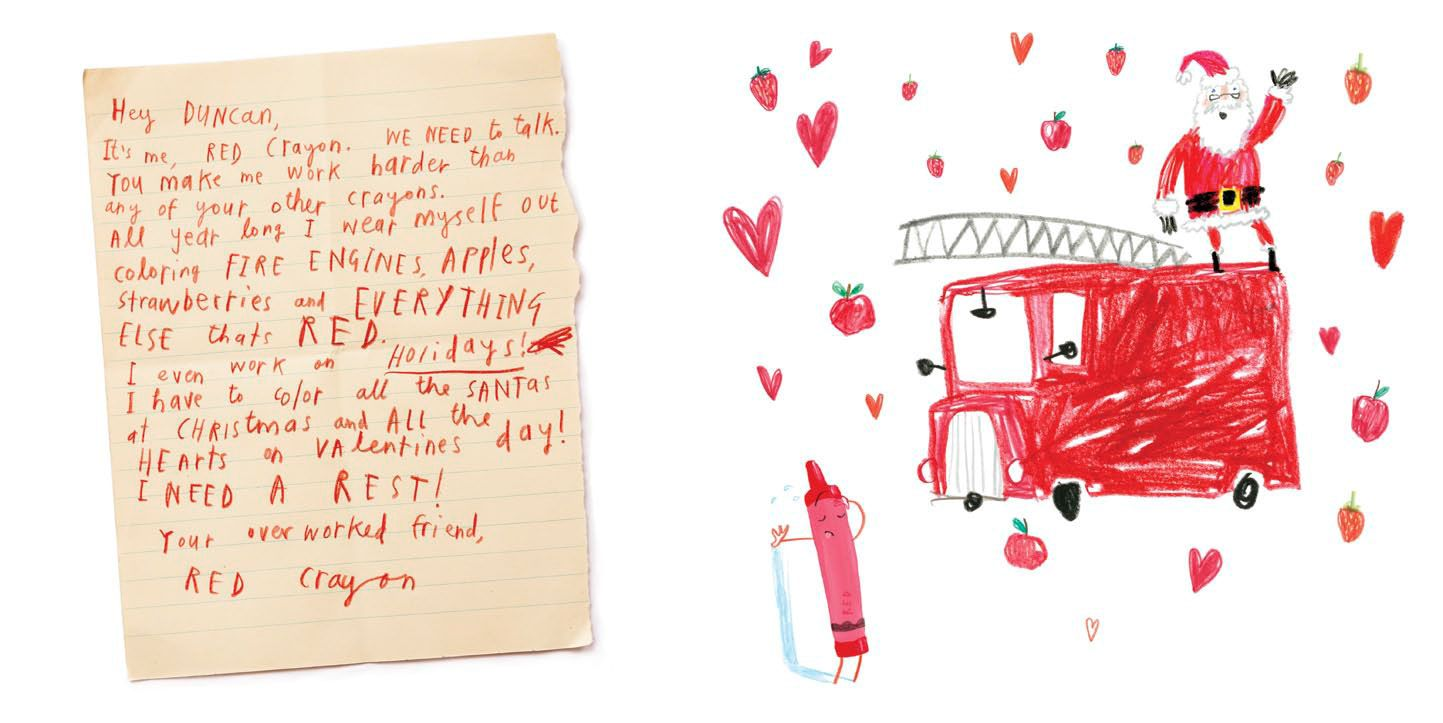 Hey DUNCan,
It's me, RED Crayon. WE NEED to talk.
You make me work harder than
any of your other crayons.
All year long I wear myself out
coloring FIRE ENGINES, APPles,
strawberries and EVERYTHING
ELSE thats RED.
I even work on Holidays!
I have to color all the SANTas
at CHRIStmas and ALL the
HEArts on VAlentines day!
I NEED A REST!
Your overworked friend,
RED Crayon
RED